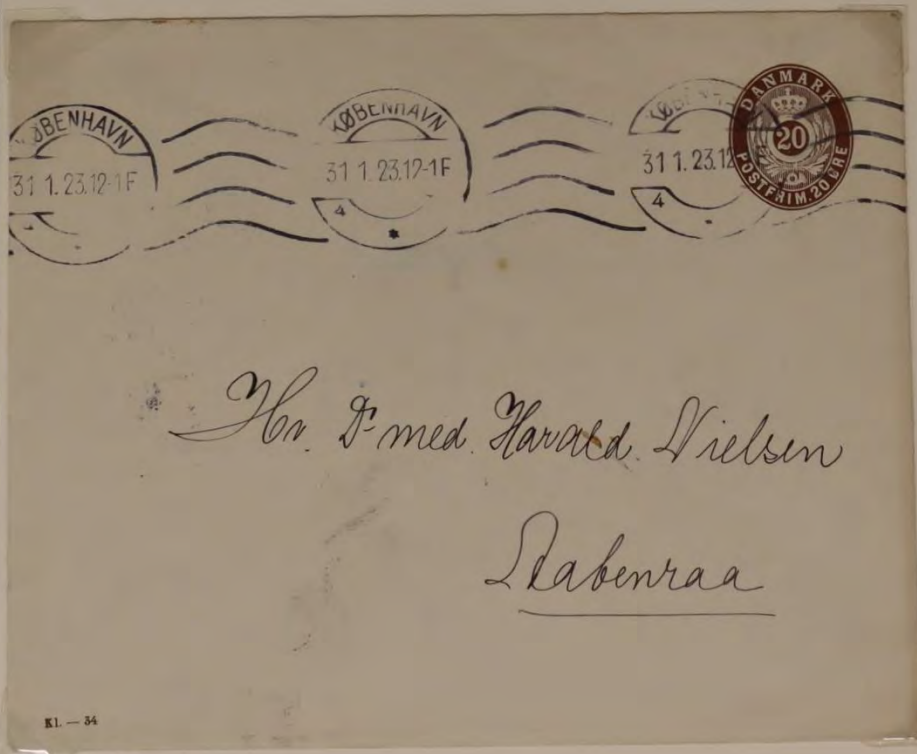 KØBENHAVN
31 1.23.12-1F
KØBENHAVN
31 1.23.12-1F
4
KØBENH
31 1.23.12
4
DANMARK
20
POSTFRIM. 20 ØRE
Hr. Dr med. Harald Nielsen
Aabenraa
Kl. — 34